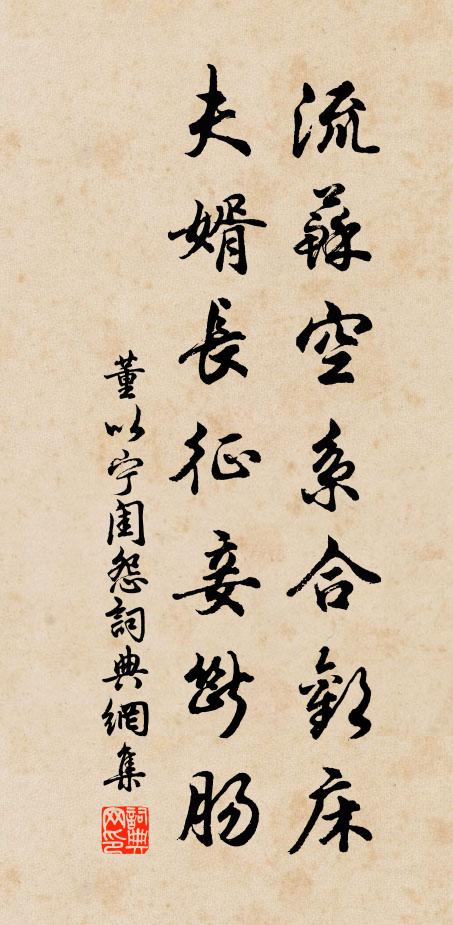 流蘇空系合歡床
夫婿長征妾斷腸
董以宁閨怨詞典網集
詞典网印